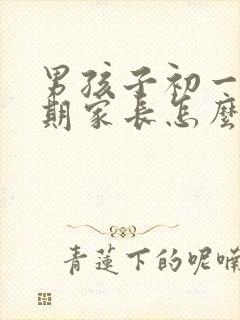 男孩子初一
期家长怎麽
青莲下的呢喃